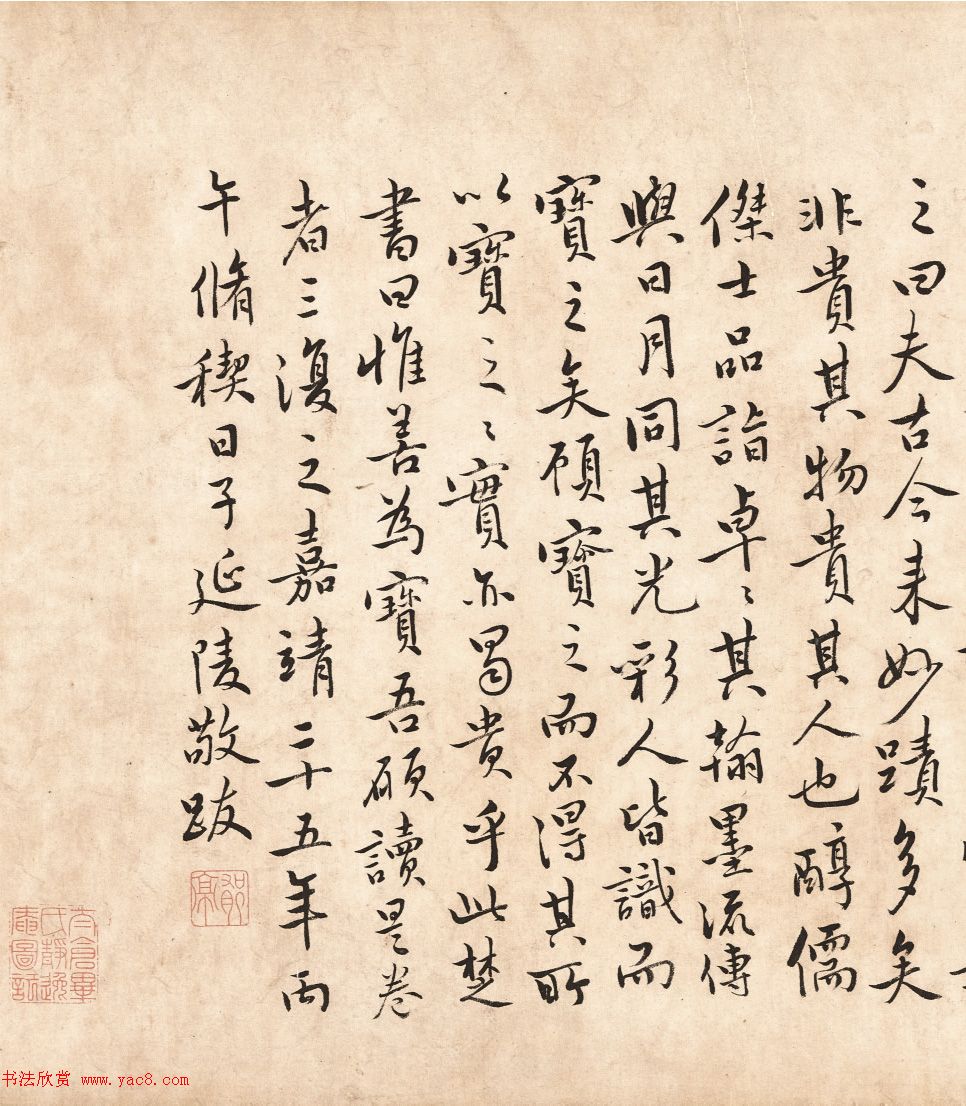 之曰夫古今来妙蹟多矣
非貴其物貴其人也醇儒
傑士品詣卓〻其翰墨流傳
與日月同其光彩人皆識而
寶之矣顧寶之而不得其所
以寶之〻實亦曷貴乎此楚
書曰惟善為寶吾願讀是卷
者三復之嘉靖二十五年丙
午脩稧日子延陵敬跋
太倉畢
氏靜逸
庵圖記
书法欣赏 www.yac8.com